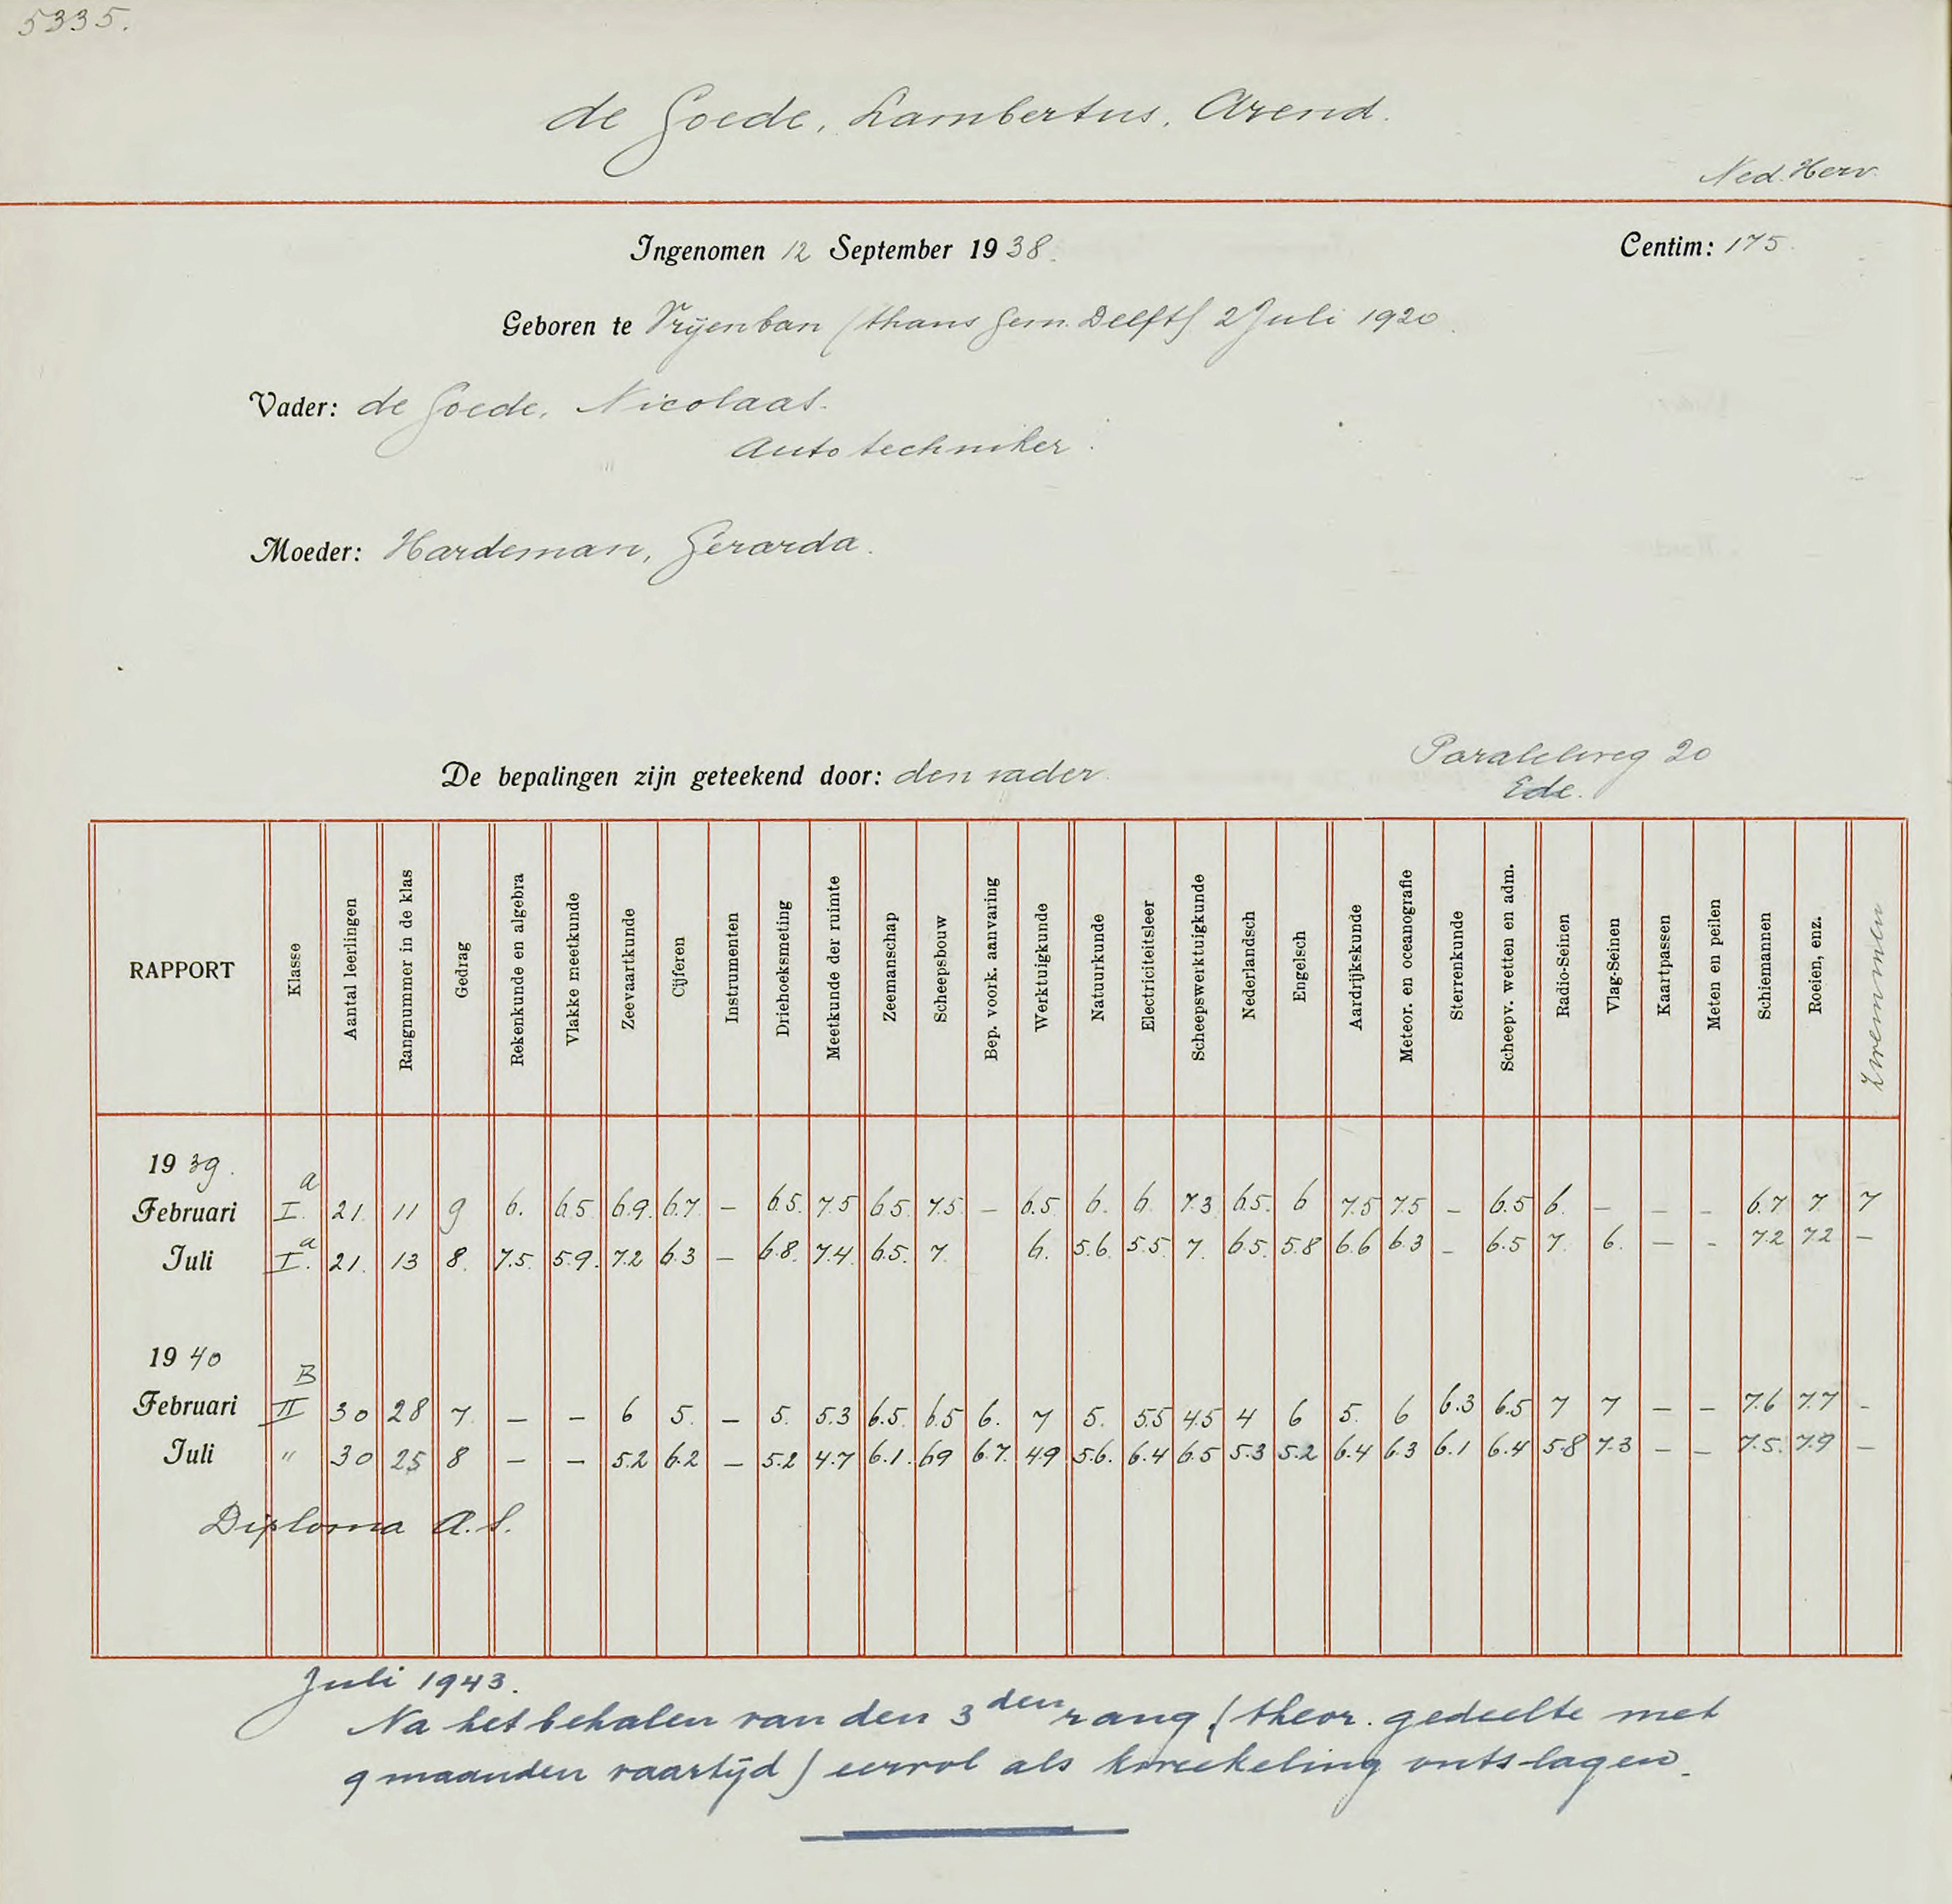 5335.
de Goede, Lambertus, Arend.
Ned. Herv.
Ingenomen 12 September 1938.
Centim: 175.
Geboren te Vrijenban (thans gem. Delft) 2 Juli 1920.
Vader: de Goede, Nicolaas.
Autotechniker.
Moeder: Hardeman, Gerarda.
Paralelweg 20
Ede.
De bepalingen zijn geteekend door: den vader.
RAPPORT Klasse Aantal leerlingen Rangnummer in de klas Gedrag Rekenkunde en algebra Vlakke meetkunde Zeevaartkunde Cijferen Instrumenten Driehoeksmeting Meetkunde der ruimte Zeemanschap Scheepsbouw Bep. voork. aanvaring Werktuigkunde Natuurkunde Electriciteitsleer Scheepswerktuigkunde Nederlandsch Engelsch Aardrijkskunde Meteor. en oceanografie Sterrenkunde Scheepv. wetten en adm. Radio-Seinen Vlag-Seinen Kaartpassen Meten en peilen Schiemannen Roeien, enz. Zwemmen
1939.
Februari I.a 21. 11 9 6. 6.5 6.9. 6.7 – 6.5. 7.5 6.5. 7.5. – 6.5 6. 6 7.3 6.5. 6 7.5 7.5 – 6.5 6. – – – 6.7 7. 7
Juli I.a 21. 13 8. 7.5. 5.9. 7.2 6.3 – 6.8. 7.4. 6.5. 7. 6. 5.6. 5.5 7. 6.5. 5.8 6.6 6.3 – 6.5 7. 6. – – 7.2 7.2 –
1940
Februari II B 30 28 7. – – 6 5. – 5. 5.3 6.5. 6.5 6. 7 5. 5.5 4.5 4 6 5. 6 6.3 6.5 7 7 – – 7.6 7.7 –
Juli " 30 25 8 – – 5.2 6.2 – 5.2 4.7 6.1. 6.9 6.7. 4.9 5.6. 6.4 6.5 5.3 5.2 6.4 6.3 6.1 6.4 5.8 7.3 – – 7.5. 7.9 –
Diploma A.S.
Juli 1943.
Na het behalen van den 3den rang (theor. gedeelte met
9 maanden vaartijd) eervol als kweekeling ontslagen.